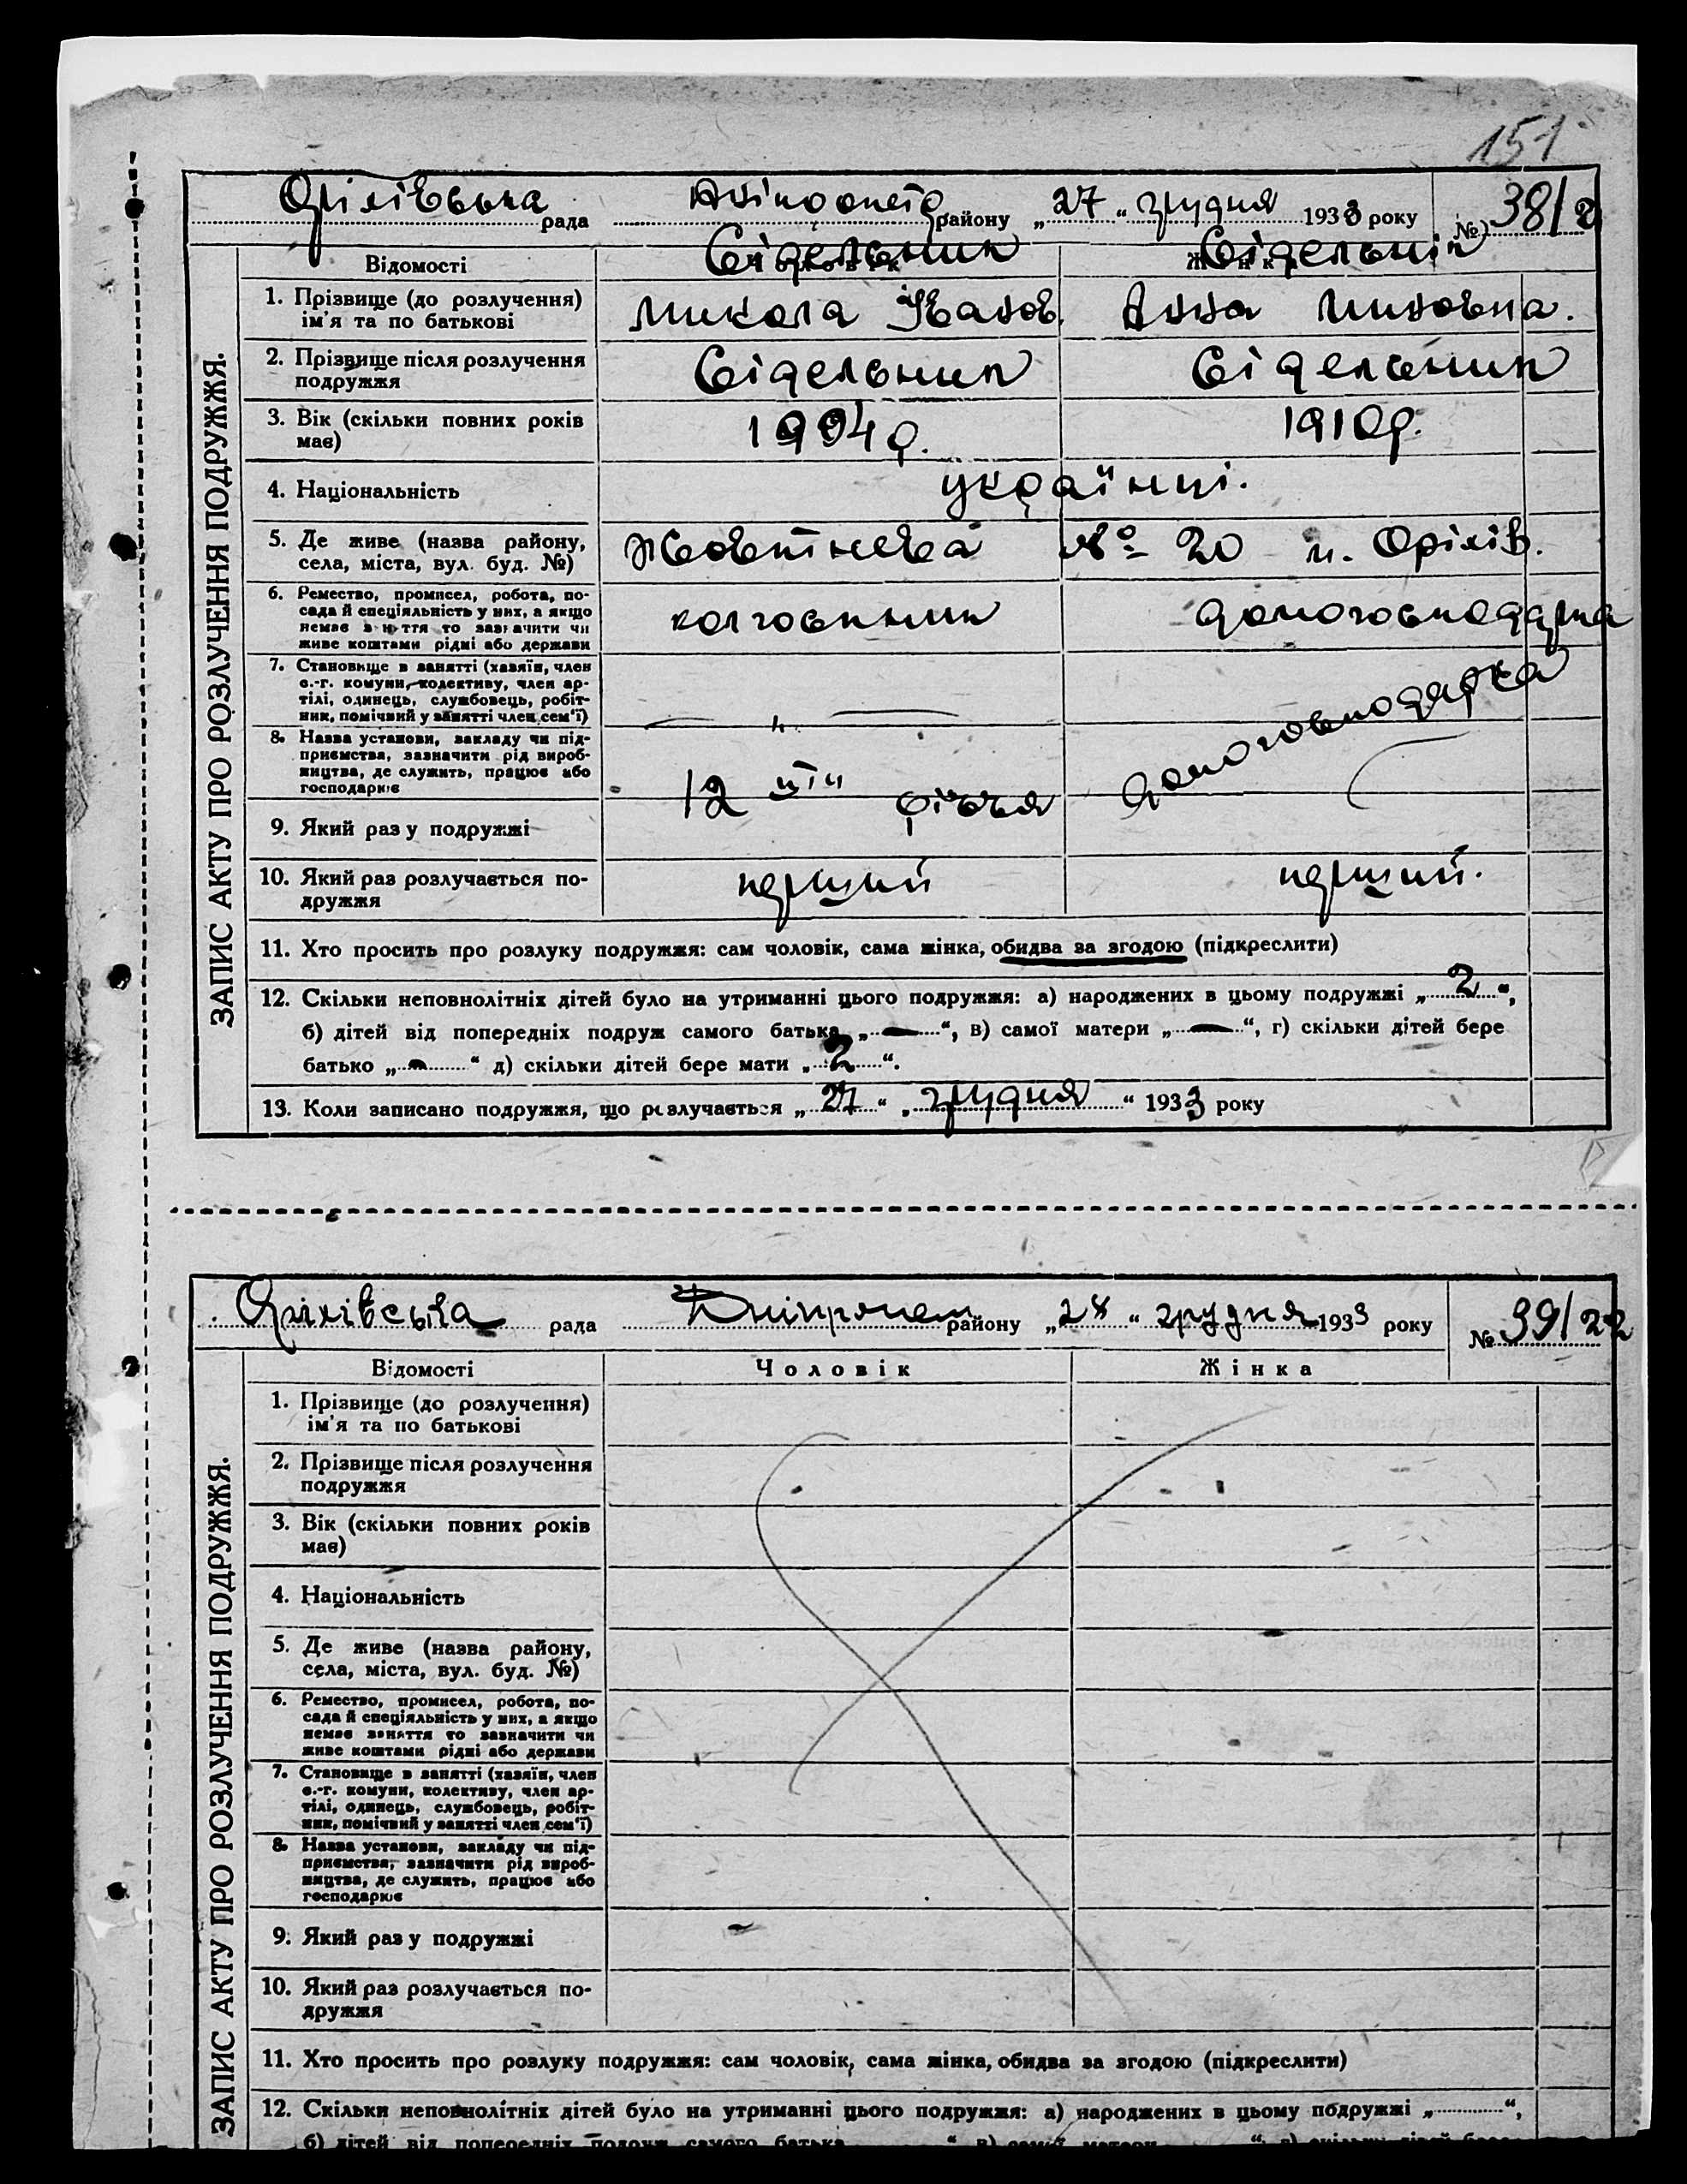 151
Оріхівська рада району „27“ грудня 1933 року № 38/2
Відомості Сідельник Сідельнік
1. Прізвище (до розлучення) ім'я та по батькові Микола Іванов. Анна
2. Прізвище після розлучення подружжя Сідельник Сідельник
3. Вік (скільки повних років має) р. 1910р.
4. Національність українці.
5. Де живе (назва району, села, міста, вул. буд. №) Жовтнева № 20 м. Оріхів.
6. Ремество, промисел, робота, по-
сада й спеціяльність у них, а якщо
немає заняття то зазначити чи
живе коштами рідні або держави колгоспник домогосподарка
7. Становище в занятті (хазяїн, член
с.-г. комуни, колективу, член ар-
тілі, одинець, службовець, робіт-
ник, помічний у занятті член сем'ї) — „ — домогосподарка
8. Назва установи, закладу чи під-
приємства, зазначити рід вироб-
ництва, де служить, працює або
господарює 12 ^ти річчя
9. Який раз у подружжі
10. Який раз розлучається по-
дружжя перший перший.
11. Хто просить про розлуку подружжя: сам чоловік, сама жінка, обидва за згодою (підкреслити)
12. Скільки неповнолітніх дітей було на утриманні цього подружжя: а) народжених в цьому подружжі „2“,
б) дітей від попередніх подруж самого батька „—“, в) самої матери „—“, г) скільки дітей бере
батько „—“ д) скільки дітей бере мати „2“.
13. Коли записано подружжя, що розлучається „27“ „грудня“ 1933 року
ЗАПИС АКТУ ПРО РОЗЛУЧЕННЯ ПОДРУЖЖЯ.
Оріхівська рада району „28“ грудня 1933 року № 39/22
Відомості Чоловік Жінка
1. Прізвище (до розлучення)
ім'я та по батькові
2. Прізвище після розлучення
подружжя
3. Вік (скільки повних років
має)
4. Національність
5. Де живе (назва району,
села, міста, вул. буд. №)
6. Ремество, промисел, робота, по-
сада й спеціяльність у них, а якщо
немає заняття то зазначити чи
живе коштами рідні або держави
7. Становище в занятті (хазяїн, член
с.-г. комуни, колективу, член ар-
тілі, одинець, службовець, робіт-
ник, помічний у занятті член сем'ї)
8. Назва установи, закладу чи під-
приємства, зазначити рід вироб-
ництва, де служить, працює або
господарює
9. Який раз у подружжі
10. Який раз розлучається по-
дружжя
11. Хто просить про розлуку подружжя: сам чоловік, сама жінка, обидва за згодою (підкреслити)
12. Скільки неповнолітніх дітей було на утриманні цього подружжя: а) народжених в цьому подружжі „“,
б) дітей від попередніх подруж самого батька “, в) самої матери “, г) скільки дітей бере
ЗАПИС АКТУ ПРО РОЗЛУЧЕННЯ ПОДРУЖЖЯ.